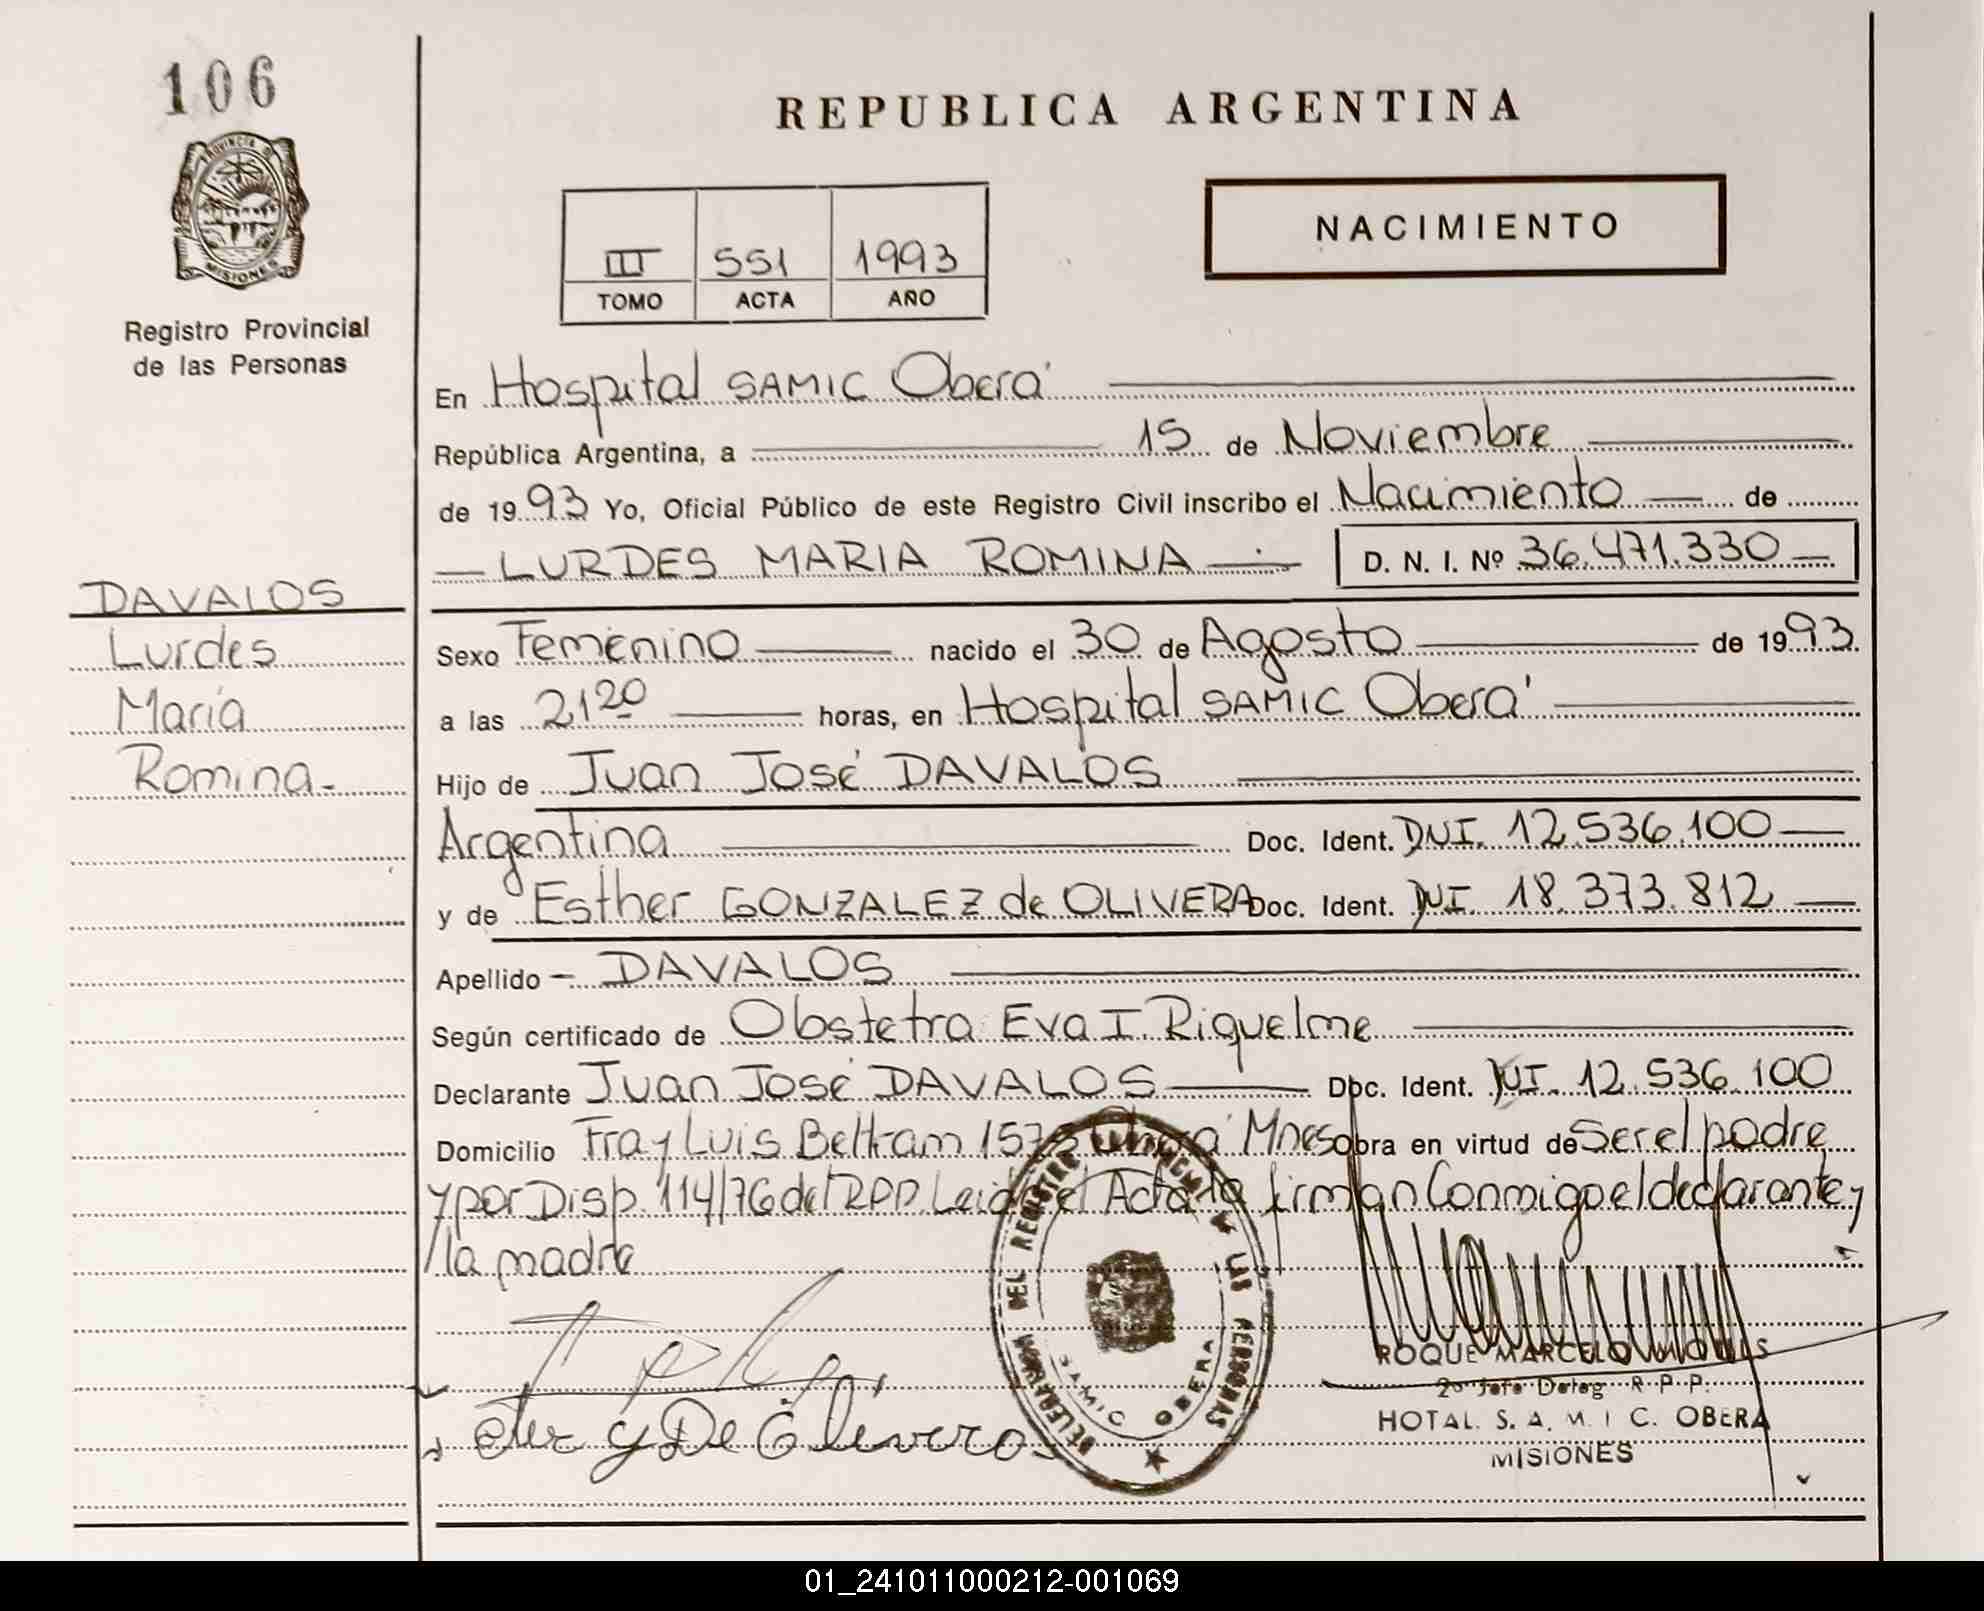 106
REPUBLICA ARGENTINA
PROVINCIA D
MISIONES
NACIMIENTO
III 551 1993
TOMO ACTA AÑO
Registro Provincial
de las Personas
En Hospital SAMIC Oberá
República Argentina, a 15 de Noviembre
de 1993 Yo, Oficial Público de este Registro Civil inscribo el Nacimiento de
LURDES MARIA ROMINA D. N. I. Nº 36.471.330
DAVALOS
Lurdes
María
Romina.
Sexo Femenino nacido el 30 de Agosto de 1993.
a las 21 20 horas, en Hospital SAMIC Oberá
Hijo de Juan José DAVALOS
Argentina Doc. Ident. DNI. 12.536.100
y de Esther GONZALEZ de OLIVERA Doc. Ident. DNI. 18.373.812
Apellido - DAVALOS
Según certificado de Obstetra Eva I. Riquelme
Declarante Juan José DAVALOS Doc. Ident. DNI. 12.536.100
Domicilio Fray Luis Beltram Oberá Mnes obra en virtud de Ser el padre
y por Disp. 114/76 del RPP. Leida el Acta la firman Conmigo el declarante y
la madre
DELEGACION DEL REGISTRO PROVINCIAL DE LAS PERSONAS
SAMIC OBERA
ROQUE MARCELO
2º Jefe Deleg R.P.P.
HOTAL. S. A. M. I C. OBERA
MISIONES
01_241011000212-001069